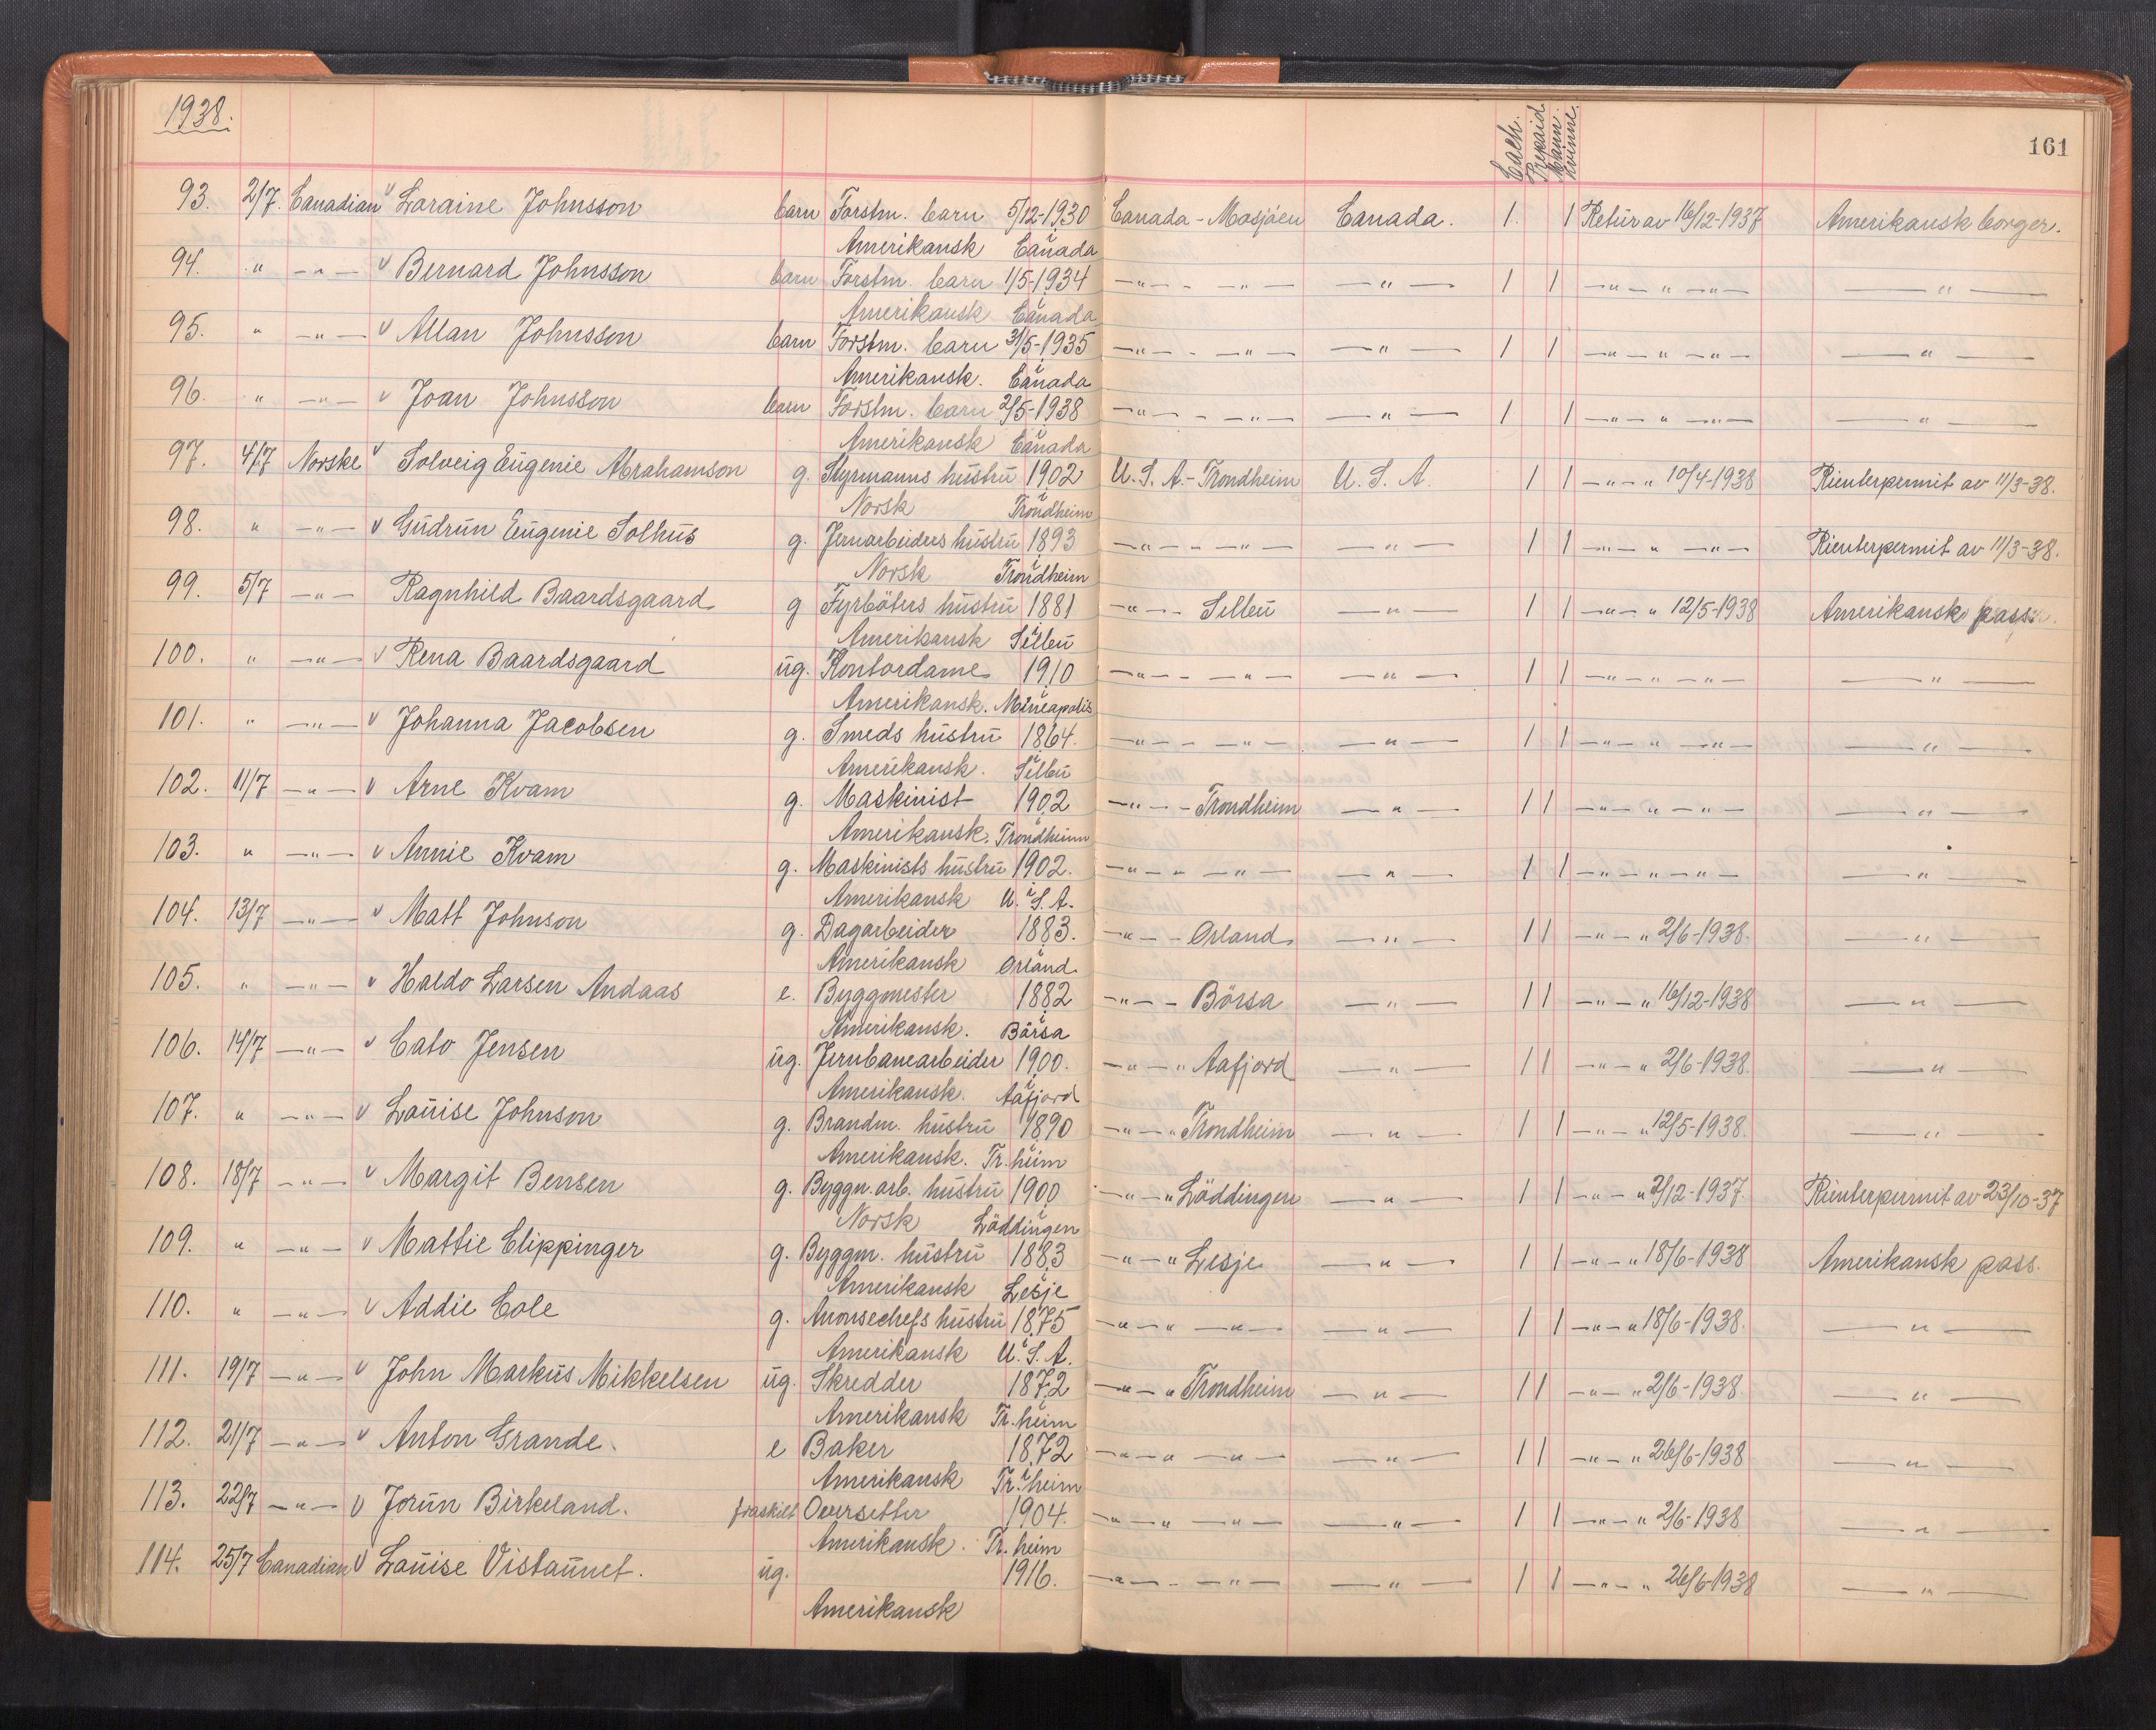 1938.
161
Cash. Prepaid Mann. kvinne.
93. 2/7. Canadian v Loraine Johnsson barn Forstm. barn 5/12-1930 Canada - Mosjöen Canada. 1. 1 Retur av 16/12-1937 Amerikansk borger.
Amerikansk i Canada
94. " -"- v Bernard Johnsson barn Forstm. barn 1/5-1934 -"- - -"- -"- 1 1 -"- " -"- -"-
Amerikansk i Canada
95. " -"- v Allan Johnsson barn Forstm. barn 31/5-1935 -"- - -"- -"- 1 1 -"- " -"- -"-
Amerikansk. i Canada
96. " -"- v Joan Johnsson barn Forstm. barn 2/5-1938 -"- - -"- -"- 1 1 -"- " -"- -"-
Amerikansk i Canada
97. 4/7 Norske v Solveig Eugenie Abrahamson g. Styrmanns hustru 1902 U.S.A. - Trondheim U.S.A. 1 1 -"- " 10/4-1938 Rienterpermit av 11/3-38.
Norsk i Trondheim
98. " -"- v Gudrun Eugenie Solhus g. Jernarbeiders hustru 1893 -"- - -"- -"- 1 1 -"- " -"- Rienterpermit av 11/3-38.
Norsk i Trondheim
99. 5/7 -"- Ragnhild Baardsgaard g Fyrböters hustru 1881 -"- - Selbu -"- 1 1 -"- " 12/5-1938 Amerikansk pass.
Amerikansk i Selbu
100. " -"- v Rena Baardsgaard ug. Kontordame 1910 -"- - -"- -"- 1 1 -"- " -"- -"-
Amerikansk. i Mineapolis
101. " -"- v Johanna Jacobsen g. Smeds hustru 1864. -"- - -"- -"- 1 1 -"- " -"- -"-
Amerikansk. i Selbu
102. 11/7 -"- v Arne Kvam g. Maskinist 1902 -"- - Trondheim -"- 1 1 -"- " -"- -"-
Amerikansk. i Trondheim
103. " -"- v Annie Kvam g. Maskinists hustru 1902. -"- " -"- -"- 1 1 -"- " -"- -"-
Amerikansk i U.S.A.
104. 13/7 -"- v Matt Johnson g. Dagarbeider 1883. -"- - Örland -"- 1 1 -"- " 2/6-1938. -"-
Amerikansk i Örland.
105. " -"- v Haldo Larsen Andaas e. Byggmester 1882 -"- - Börsa -"- 1 1 -"- " 16/12-1938 -"-
Amerikansk. i Börsa
106. 14/7 -"- v Cato Jensen ug. Jernbanearbeider 1900. -"- " Aafjord -"- 1 1 -"- " 2/6-1938. -"-
Amerikansk. i Aafjord
107. " -"- v Louise Johnson g. Brandm. hustru 1890 -"- " Trondheim -"- 1 1 -"- " 12/5-1938. -"-
Amerikansk. i Tr.heim
108. 18/7 -"- v Margit Bensen g. Byggn.arb. hustru 1900 -"- " Löddingen -"- 1 1 -"- " 2/12-1937. Rienterpermit av 23/10-37
Norsk i Löddingen
109. " -"- v Mattie Clippinger g. Byggm. hustru 1883 -"- " Lesje -"- 1 1 -"- " 18/6-1938 Amerikansk pass.
Amerikansk i Lesje
110. " -"- v Addie Cole g. Anonsechefs hustru 1875 -"- " -"- -"- 1 1 -"- " 18/6-1938. -"-
Amerikansk i U.S.A.
111. 19/7 -"- v John Markus Mikkelsen ug. Skredder 1872 -"- " Trondheim -"- 1 1 -"- " 2/6-1938 -"-
Amerikansk i Tr.heim
112. 21/7 -"- v Anton Grande. e Baker 1872 -"- " -"- -"- 1 1 -"- " 26/6-1938 -"-
Amerikansk i Tr.heim
113. 22/7 -"- v Jorun Birkeland. fraskilt Oversetter 1904. -"- " -"- -"- 1 1 -"- " 2/6-1938 -"-
Amerikansk. i Tr.heim
114. 25/7 Canadian v Louise Vistaunet. ug. 1916. -"- - -"- -"- 1 1 -"- " 26/6-1938 -"-
Amerikansk